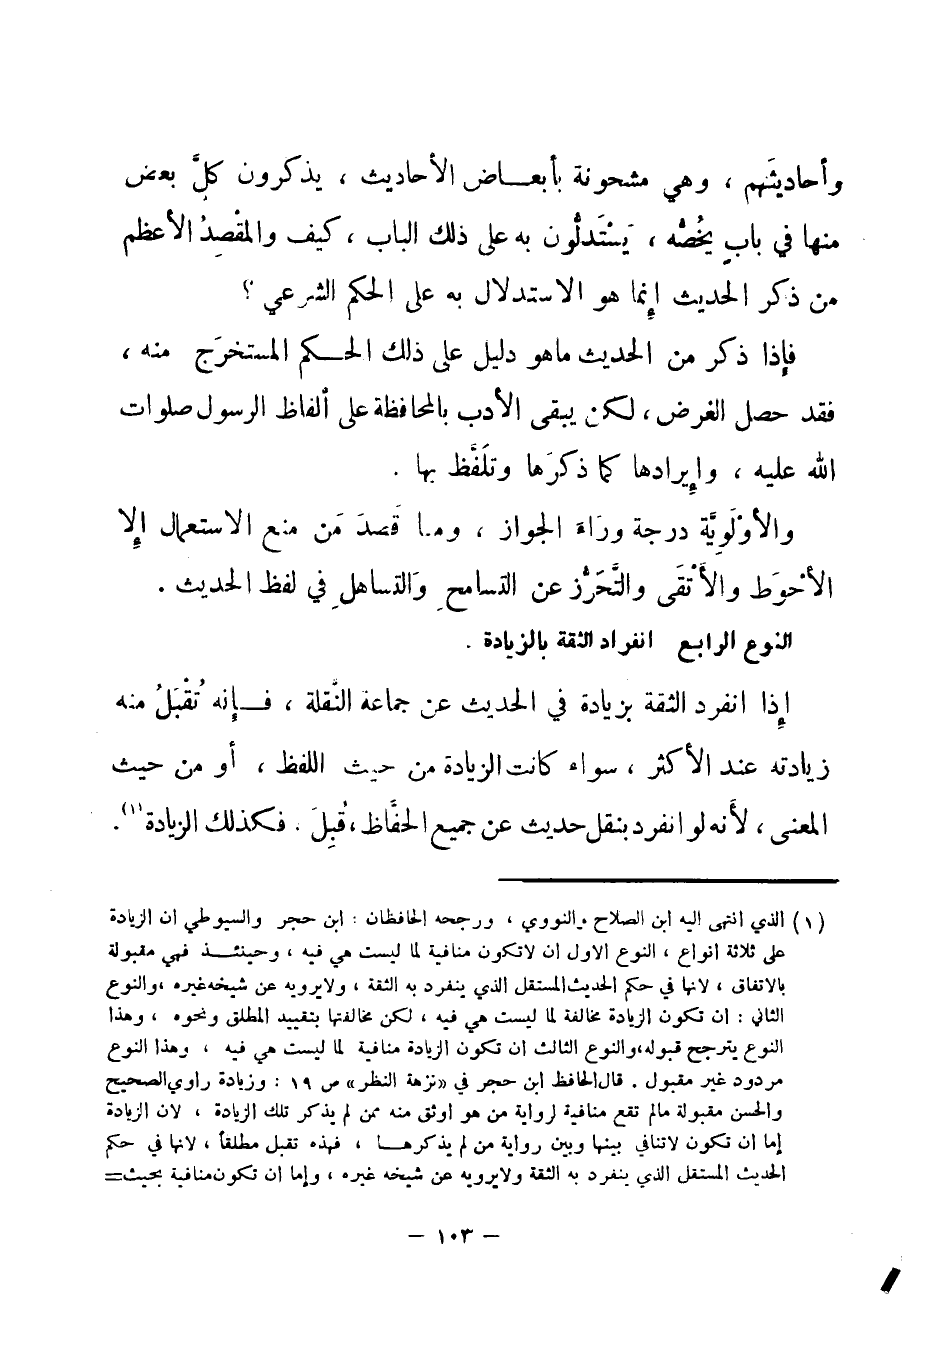 وأحاديثَهم ، وهي مشحونة بأبعـاض الأحاديث ، يذكرون كلَّ بعض
منها في بابٍ يخُصُّه ، يَسْتَدلُّون به على ذلك الباب ، كيف والمقْصِدُ الأعظم
من ذكر الحديث إنما هو الاستدلال به على الحكم الشرعي ؟
فإذا ذكر من الحديث ماهو دليل على ذلك الحـكم المستخرَج منه ،
فقد حصل الغرض ، لكن يبقى الأدب بالمحافظة على ألفاظ الرسول صلوات
الله عليه ، وإيرادها كما ذكرَها وتلَفَّظ بها .
والأوْلَوِيَّة درجة ورَاءَ الجواز ، وما قَصدَ مَن منع الاستعمال إلا
الأحْوَط والأَتْقَى والتَّحَرُّز عن التسامحِ وَالتساهلِ في لفظ الحديث .
النوع الرابع انفراد الثقة بالزيادة .
إذا انفرد الثقة بزيادة في الحديث عن جماعة النَّقلة ، فـإنه تُقْبَلُ منه
زيادته عند الأكثر ، سواء كانت الزيادة من حيث اللفظ ، أو من حيث
المعنى ، لأَنه لو انفرد بنقل حديث عن جميع الحفَّاظ ، قُبِلَ . فكذلك الزيادة (١) .
(١) الذي انتهى اليه ابن الصلاح والنووي ، ورجحه الحافظان : ابن حجر والسيوطي ان الزيادة
على ثلاثة انواع ، النوع الاول ان لاتكون منافية لما ليست هي فيه ، وحينئـذ فهي مقبولة
بالاتفاق ، لانها في حكم الحديث المستقل الذي ينفرد به الثقة ، ولايرويه عن شيخه غيره ، والنوع
الثاني : ان تكون الزيادة مخالفة لما ليست هي فيه ، لكن مخالفتها بتقييد المطلق ونحوه ، وهذا
النوع يترجح قبوله ، والنوع الثالث ان تكون الزيادة منافية لما ليست هي فيه ، وهذا النوع
مردود غير مقبول . قال الحافظ ابن حجر في «نزهة النظر» ص ١٩ : وزيادة راوي الصحيح
والحسن مقبولة مالم تقع منافية لرواية من هو اوثق منه ممن لم يذكر تلك الزيادة ، لان الزيادة
إما ان تكون لاتنافي بينها وبين رواية من لم يذكرهـا ، فهذه تقبل مطلقاً ، لانها في حكم
الحديث المستقل الذي ينفرد به الثقة ولايرويه عن شيخه غيره ، وإما ان تكون منافية بحيث=
— ١٠٣ —